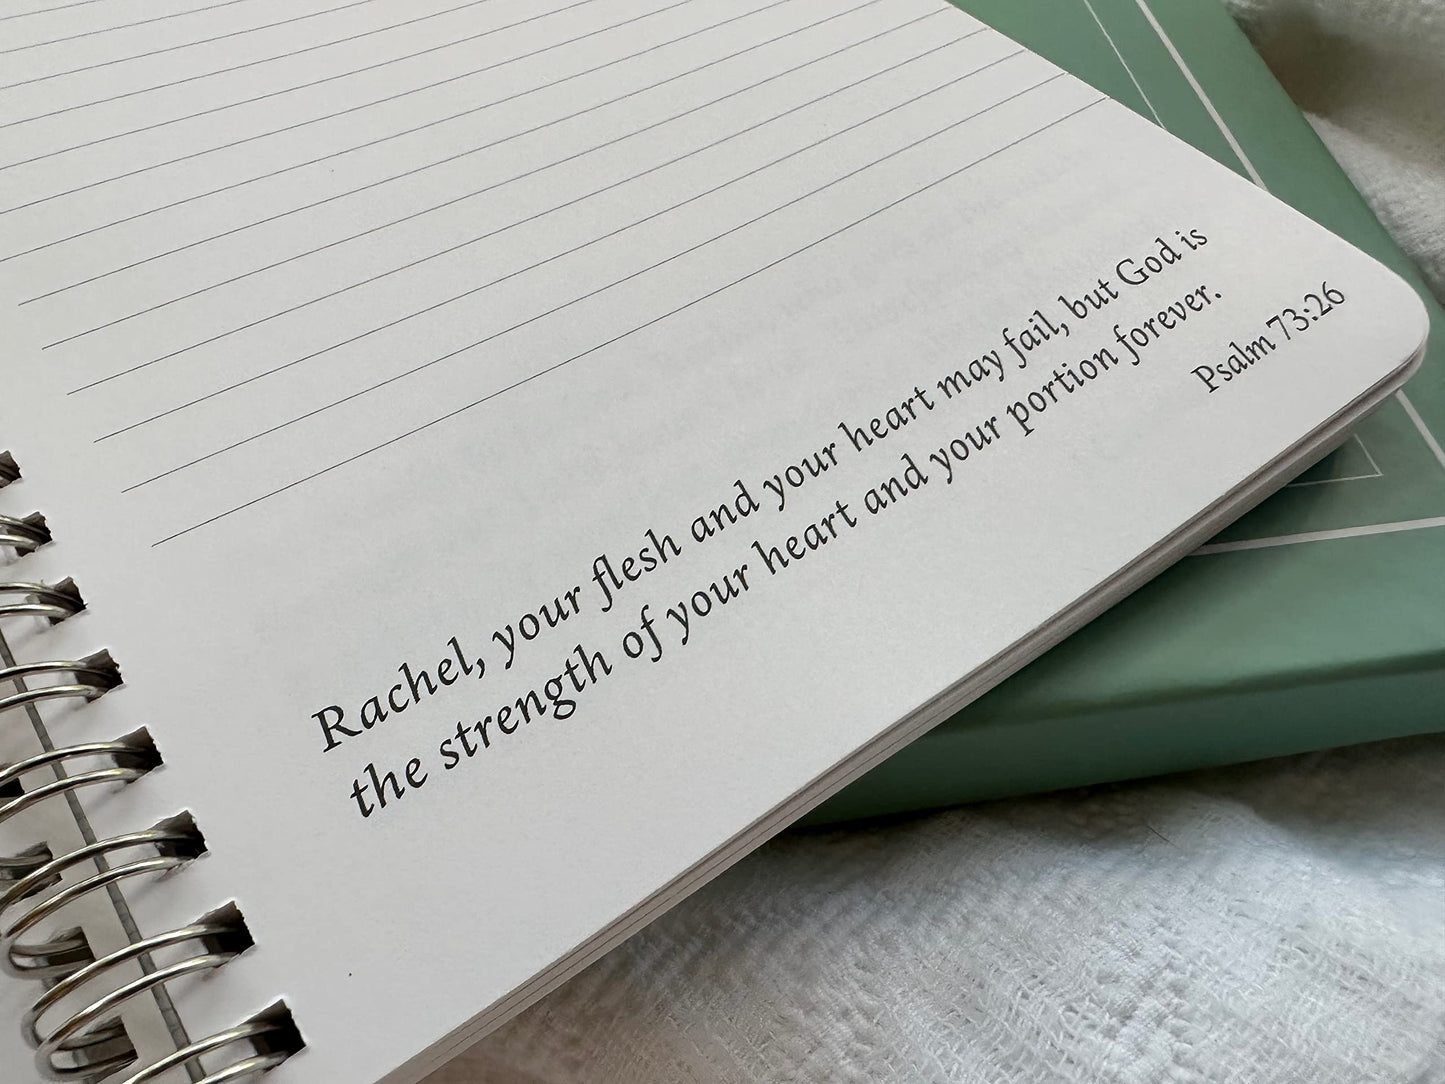 Rachel, your flesh and your heart may fail, but God is
the strength of your heart and your portion forever.
Psalm 73:26